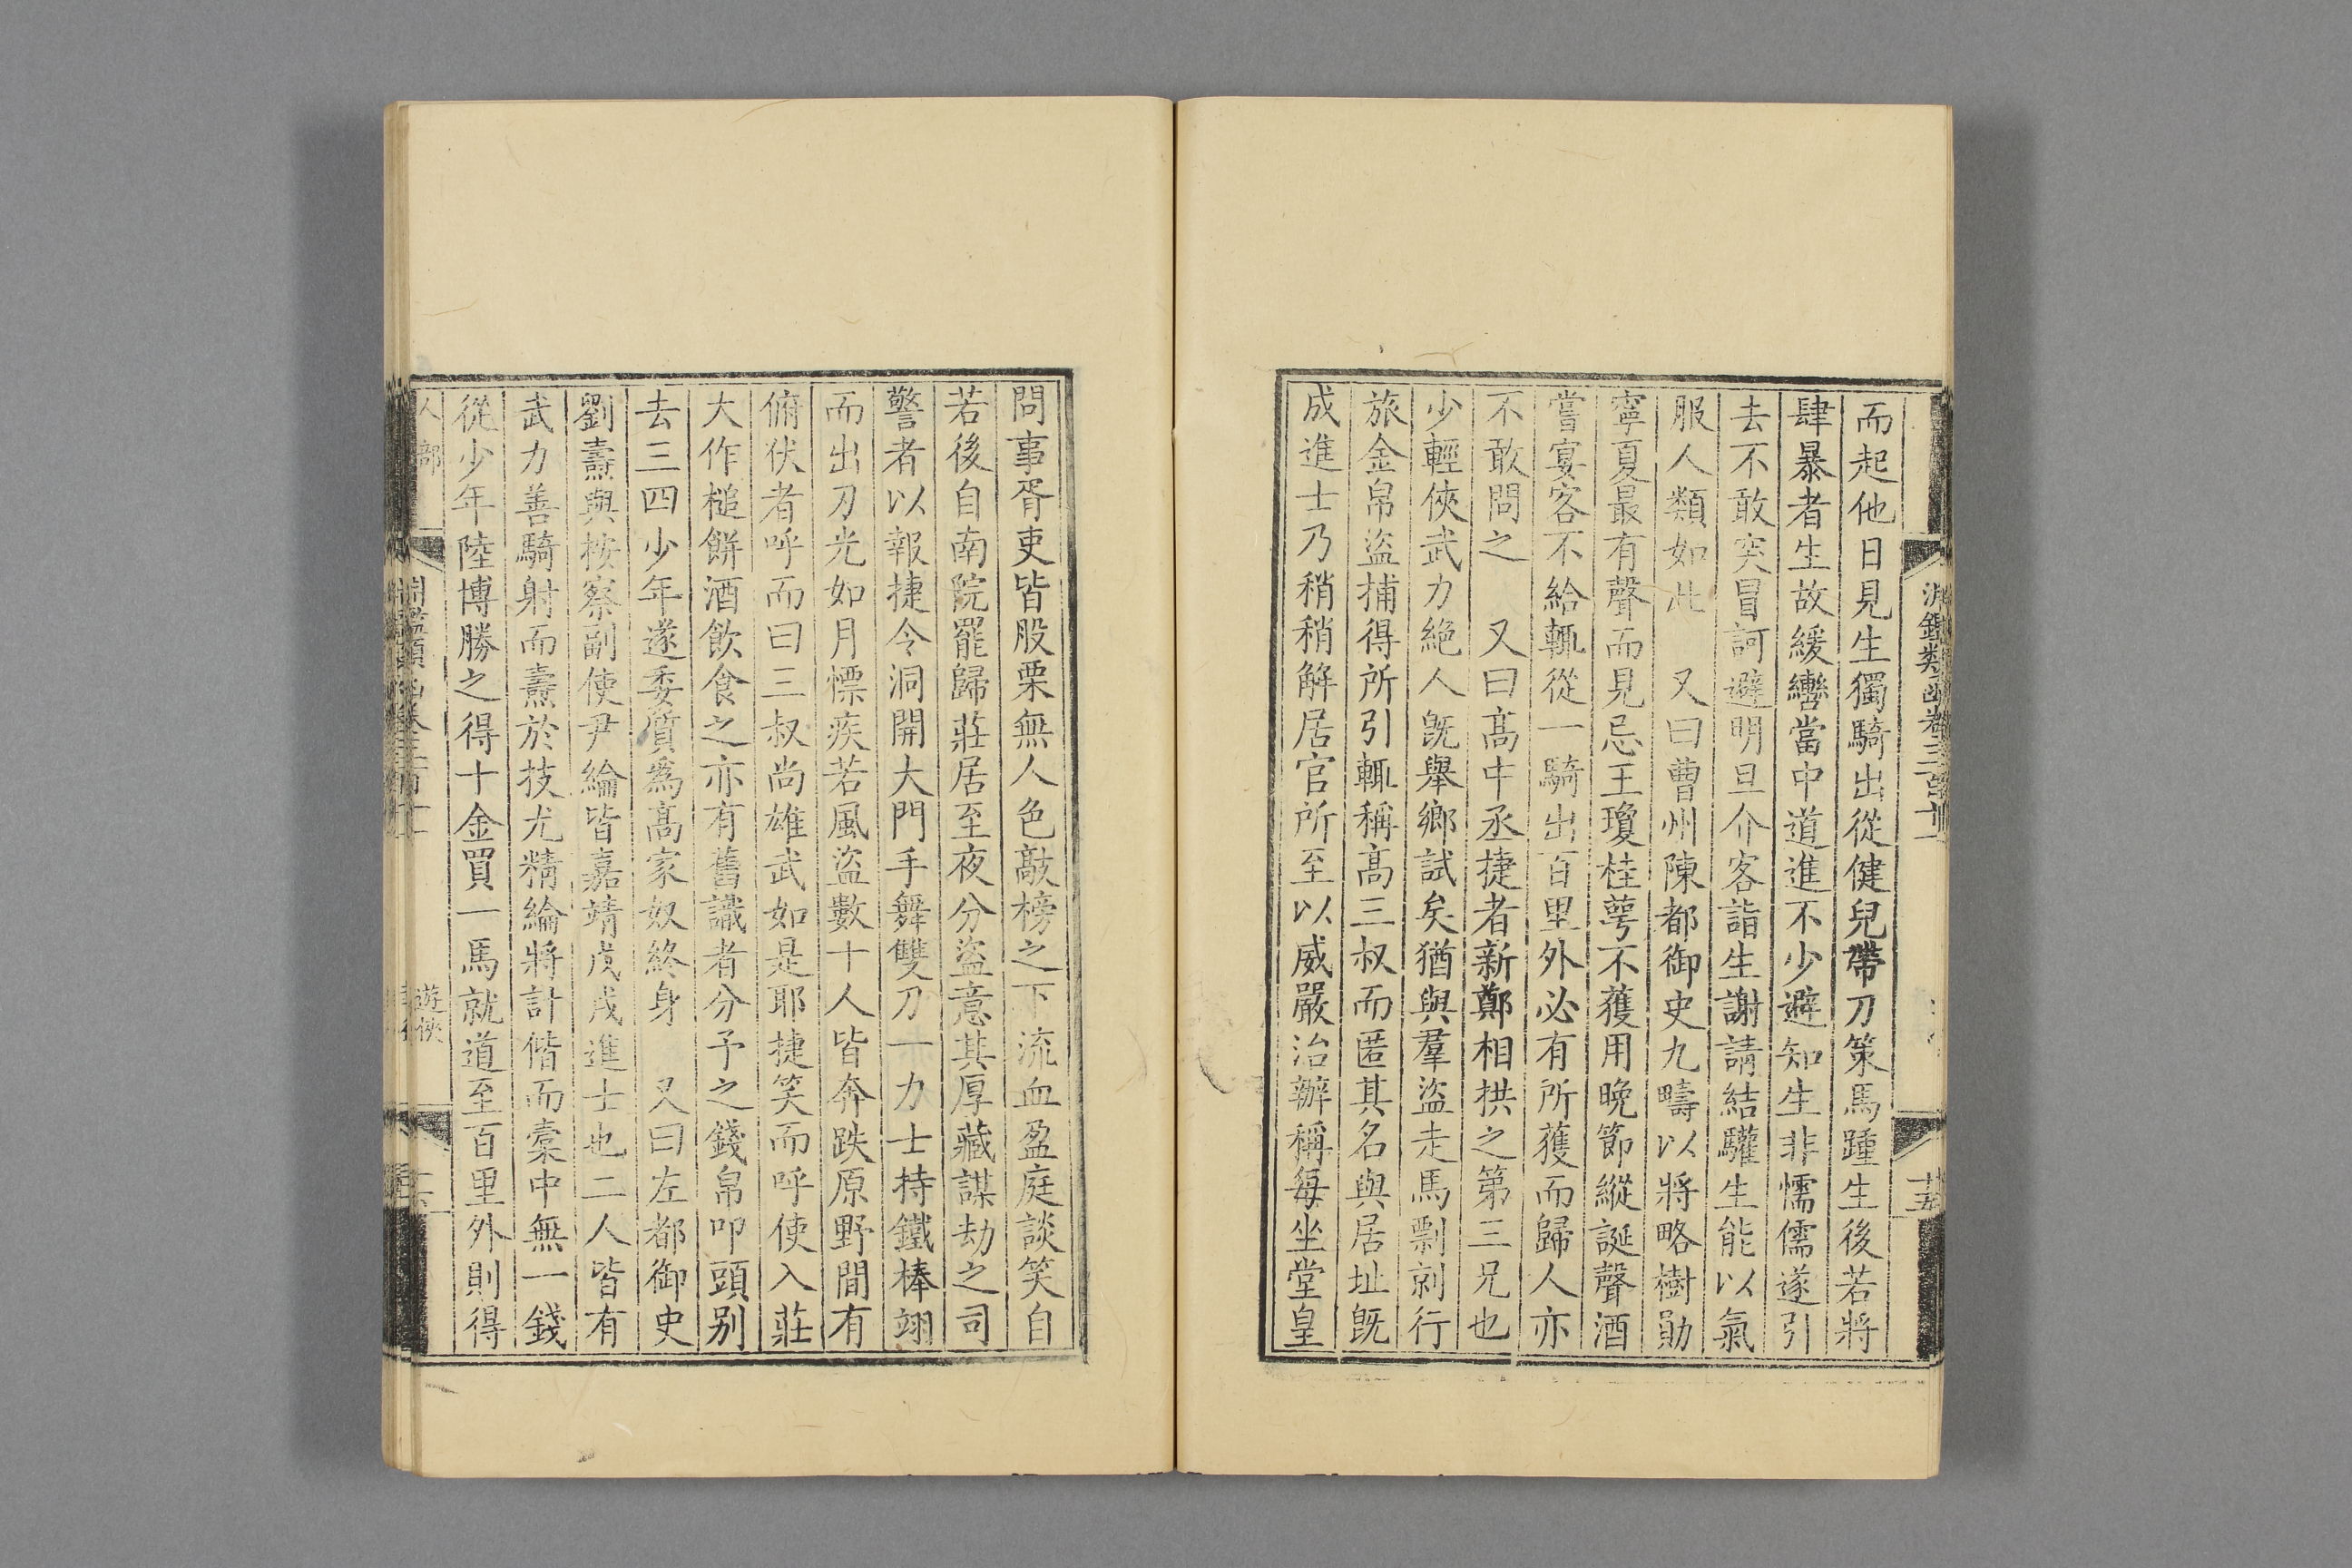 淵鑑類函卷三百十一
十五
而起他日見生獨騎出從健兒帶刀策馬踵生後若將
肆暴者生故緩轡當中道進不少避知生非懦儒遂引
去不敢突冒訶避明旦介客詣生謝請結驩生能以氣
服人類如此　又曰曹州陳都御史九疇以將略樹勛
寧夏最有聲而見忌王瓊桂萼不獲用晚節縱誕聲酒
嘗宴客不給輒從一騎出百里外必有所獲而歸人亦
不敢問之　又曰高中丞捷者新鄭相拱之第三兄也
少輕俠武力絶人旣舉鄉試矣猶與羣盜走馬剽剥行
旅金帛盜捕得所引輒稱高三叔而匿其名與居址旣
成進士乃稍稍解居官所至以威嚴治辦稱每坐堂皇
問事胥吏皆股栗無人色敲榜之下流血盈庭談笑自
若後自南院罷歸莊居至夜分盜意其厚藏謀劫之司
警者以報捷令洞開大門手舞雙刀一力士持鐵棒翊
而出刀光如月慓疾若風盜數十人皆奔跌原野間有
俯伏者呼而曰三叔尚雄武如是耶捷笑而呼使入莊
大作槌餅酒飲食之亦有舊識者分予之錢帛叩頭别
去三四少年遂委質爲高家奴終身　又曰左都御史
劉燾與按察副使尹綸皆嘉靖戊戌進士也二人皆有
武力善騎射而燾於技尤精綸將計偕而橐中無一錢
從少年陸博勝之得十金買一馬就道至百里外則得
人部
遊俠